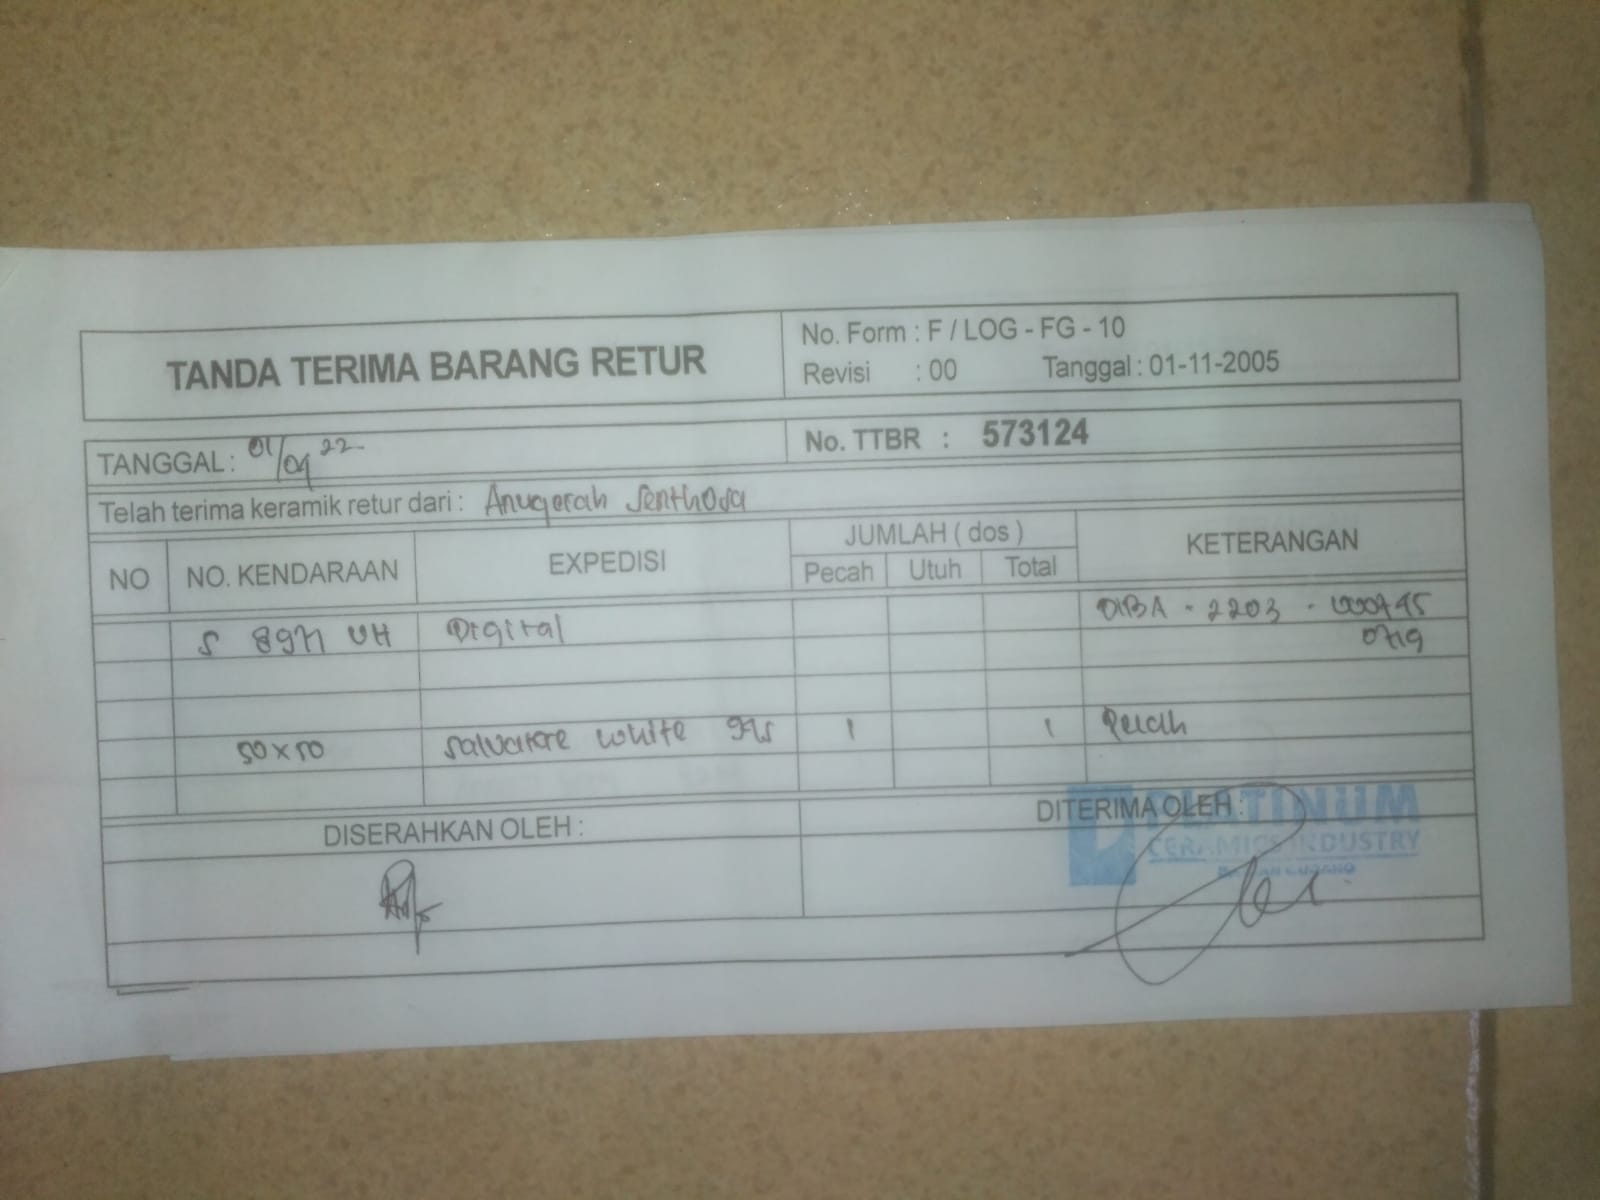 TANDA TERIMA BARANG RETUR
No. Form : F / LOG - FG - 10
Revisi : 00 Tanggal : 01-11-2005
TANGGAL : 01/04 22
No. TTBR : 573124
Telah terima keramik retur dari : Anugerah Senthosa
NO NO. KENDARAAN EXPEDISI JUMLAH ( dos ) KETERANGAN
Pecah Utuh Total
S 8971 UH Digital DIBA - 2203 - 000745
0719
50 x 50 Salvatore white 1 1 Pecah
DISERAHKAN OLEH :
DITERIMA OLEH :
PLATINUM
CERAMICS INDUSTRY